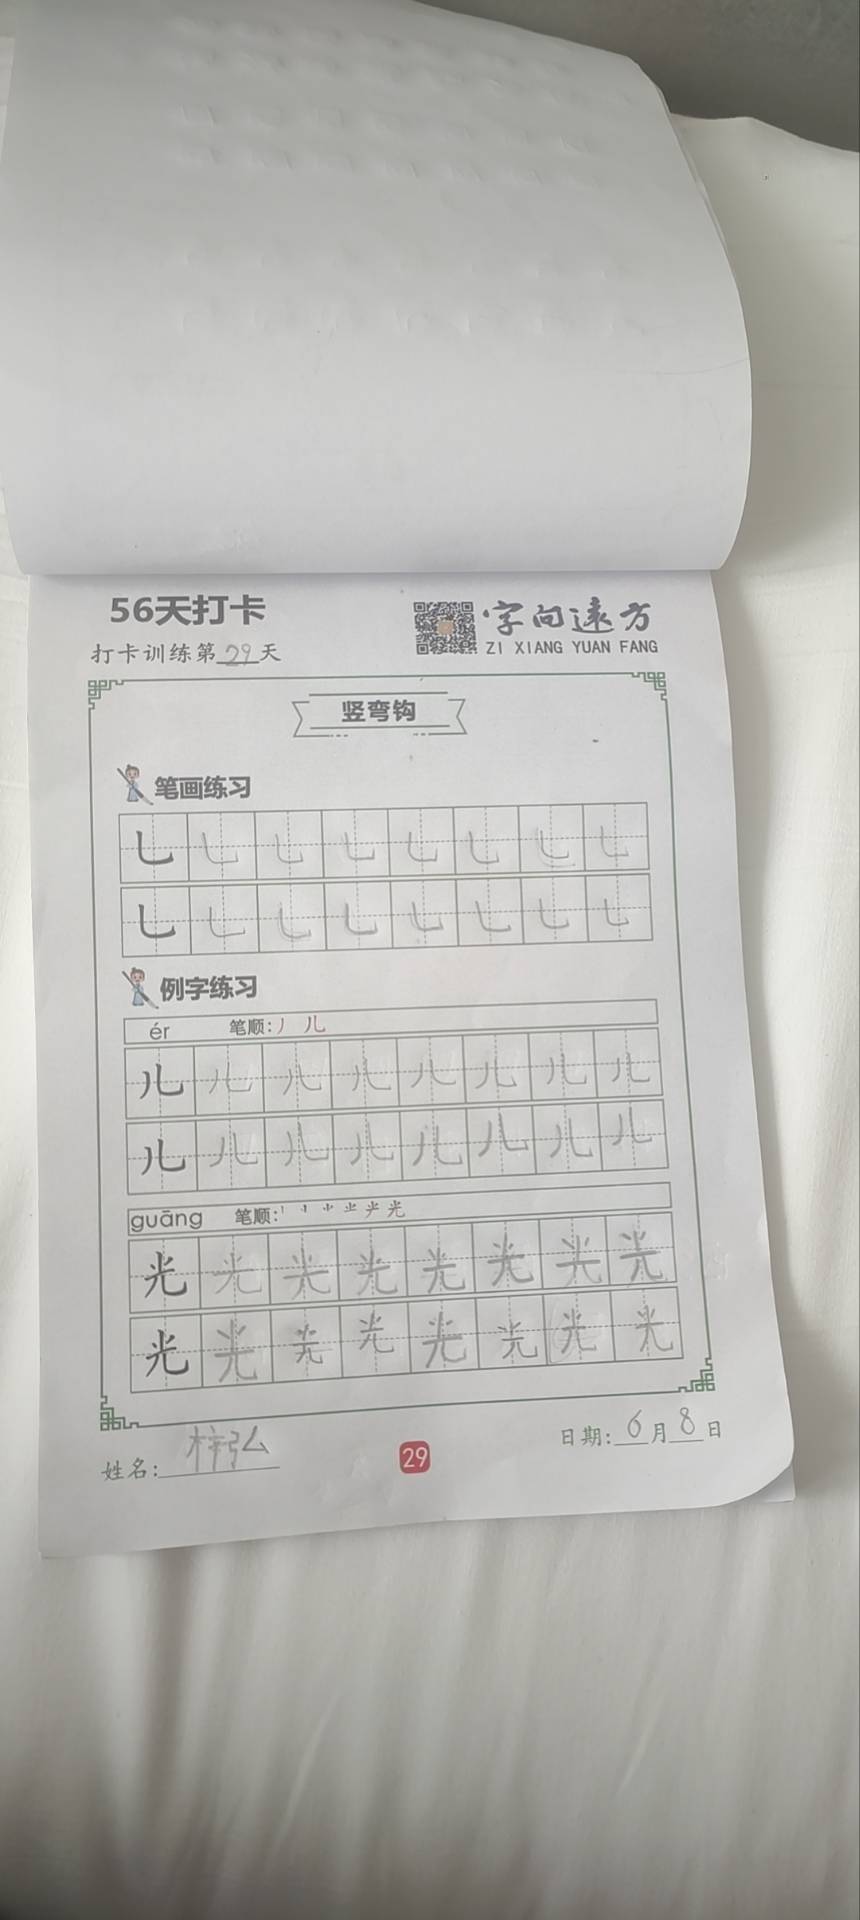 56天打卡
字向远方
打卡训练第29天
ZI XIANG YUAN FANG
竖弯钩
笔画练习
乚 乚 乚 乚 乚 乚 乚 乚
乚 乚 乚 乚 乚 乚 乚 乚
例字练习
ér 笔顺:丿 儿
儿 儿 儿 儿 儿 儿 儿 儿
儿 儿 儿 儿 儿 儿 儿 儿
guāng 笔顺:
光 光 光 光 光 光 光 光
光 光 光 光 光 光 光 光
姓名:梓弘
29
日期:6月8日